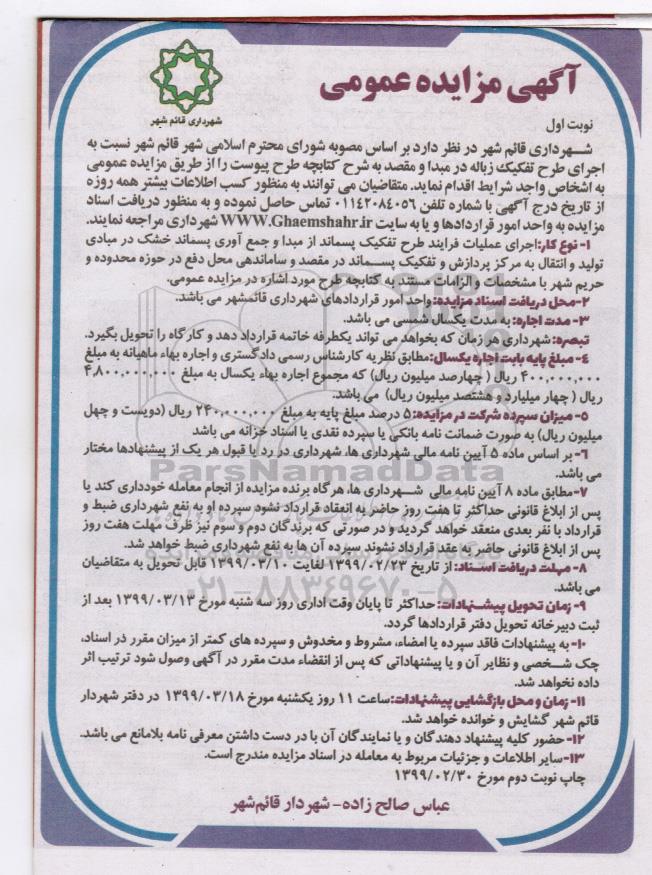 آگهی مزایده عمومی
شهرداری قائم شهر
نوبت اول
شهرداری قائم شهر در نظر دارد بر اساس مصوبه شورای محترم اسلامی شهر قائم شهر نسبت به
اجرای طرح تفکیک زباله در مبدا و مقصد به شرح کتابچه طرح پیوست را از طریق مزایده عمومی
به اشخاص واجد شرایط اقدام نماید. متقاضیان می توانند به منظور کسب اطلاعات بیشتر همه روزه
از تاریخ درج آگهی با شماره تلفن ۰۱۱۴۲۰۸۴۰۵۶ تماس حاصل نموده و به منظور دریافت اسناد
مزایده به واحد امور قراردادها و یا به سایت WWW.Ghaemshahr.ir شهرداری مراجعه نمایند.
۱- نوع کار:اجرای عملیات فرایند طرح تفکیک پسماند از مبدا و جمع آوری پسماند خشک در مبادی
تولید و انتقال به مرکز پردازش و تفکیک پسماند در مقصد و ساماندهی محل دفع در حوزه محدوده و
حریم شهر با مشخصات و الزامات مستند به کتابچه طرح مورد اشاره در مزایده عمومی.
۲-محل دریافت اسناد مزایده: واحد امور قراردادهای شهرداری قائمشهر می باشد.
۳- مدت اجاره: به مدت یکسال شمسی می باشد.
تبصره: شهرداری هر زمان که بخواهد می تواند یکطرفه خاتمه قرارداد دهد و کارگاه را تحویل بگیرد.
۴- مبلغ پایه بابت اجاره یکسال:مطابق نظریه کارشناس رسمی دادگستری و اجاره بهاء ماهیانه به مبلغ
۴۰۰,۰۰۰,۰۰۰ ریال ( چهارصد میلیون ریال) که مجموع اجاره بهاء یکسال به مبلغ ۴,۸۰۰,۰۰۰,۰۰۰
ریال ( چهار میلیارد و هشتصد میلیون ریال) می باشد.
۵- میزان سپرده شرکت در مزایده: ۵ درصد مبلغ پایه به مبلغ ۲۴۰,۰۰۰,۰۰۰ ریال (دویست و چهل
میلیون ریال) به صورت ضمانت نامه بانکی یا سپرده نقدی یا اسناد خزانه می باشد
۶- بر اساس ماده ۵ آیین نامه مالی شهرداری ها، شهرداری در رد یا قبول هر یک از پیشنهادها مختار
می باشد.
۷-مطابق ماده ۸ آیین نامه مالی شهرداری ها، هرگاه برنده مزایده از انجام معامله خودداری کند یا
پس از ابلاغ قانونی حداکثر تا هفت روز حاضر به انعقاد قرارداد نشود سپرده او به نفع شهرداری ضبط و
قرارداد با نفر بعدی منعقد خواهد گردید و در صورتی که برندگان دوم و سوم نیز ظرف مهلت هفت روز
پس از ابلاغ قانونی حاضر به عقد قرارداد نشوند سپرده آن ها به نفع شهرداری ضبط خواهد شد.
۸- مهلت دریافت اسناد: از تاریخ ۱۳۹۹/۰۲/۲۳ لغایت ۱۳۹۹/۰۳/۱۰ قابل تحویل به متقاضیان
می باشد.
۹- زمان تحویل پیشنهادات: حداکثر تا پایان وقت اداری روز سه شنبه مورخ ۱۳۹۹/۰۳/۱۳ بعد از
ثبت دبیرخانه تحویل دفتر قراردادها گردد.
۱۰- به پیشنهادات فاقد سپرده یا امضاء، مشروط و مخدوش و سپرده های کمتر از میزان مقرر در اسناد،
چک شخصی و نظایر آن و یا پیشنهاداتی که پس از انقضاء مدت مقرر در آگهی وصول شود ترتیب اثر
داده نخواهد شد.
۱۱- زمان و محل بازگشایی پیشنهادات: ساعت ۱۱ روز یکشنبه مورخ ۱۳۹۹/۰۳/۱۸ در دفتر شهردار
قائم شهر گشایش و خوانده خواهد شد.
۱۲-حضور کلیه پیشنهاد دهندگان و یا نمایندگان آن با در دست داشتن معرفی نامه بلامانع می باشد.
۱۳-سایر اطلاعات و جزئیات مربوط به معامله در اسناد مزایده مندرج است.
چاپ نوبت دوم مورخ ۱۳۹۹/۰۲/۳۰
عباس صالح زاده- شهردار قائم‌شهر
ParsNamadData
۰۲۱-۸۸۳۴۹۶۷۰-۵